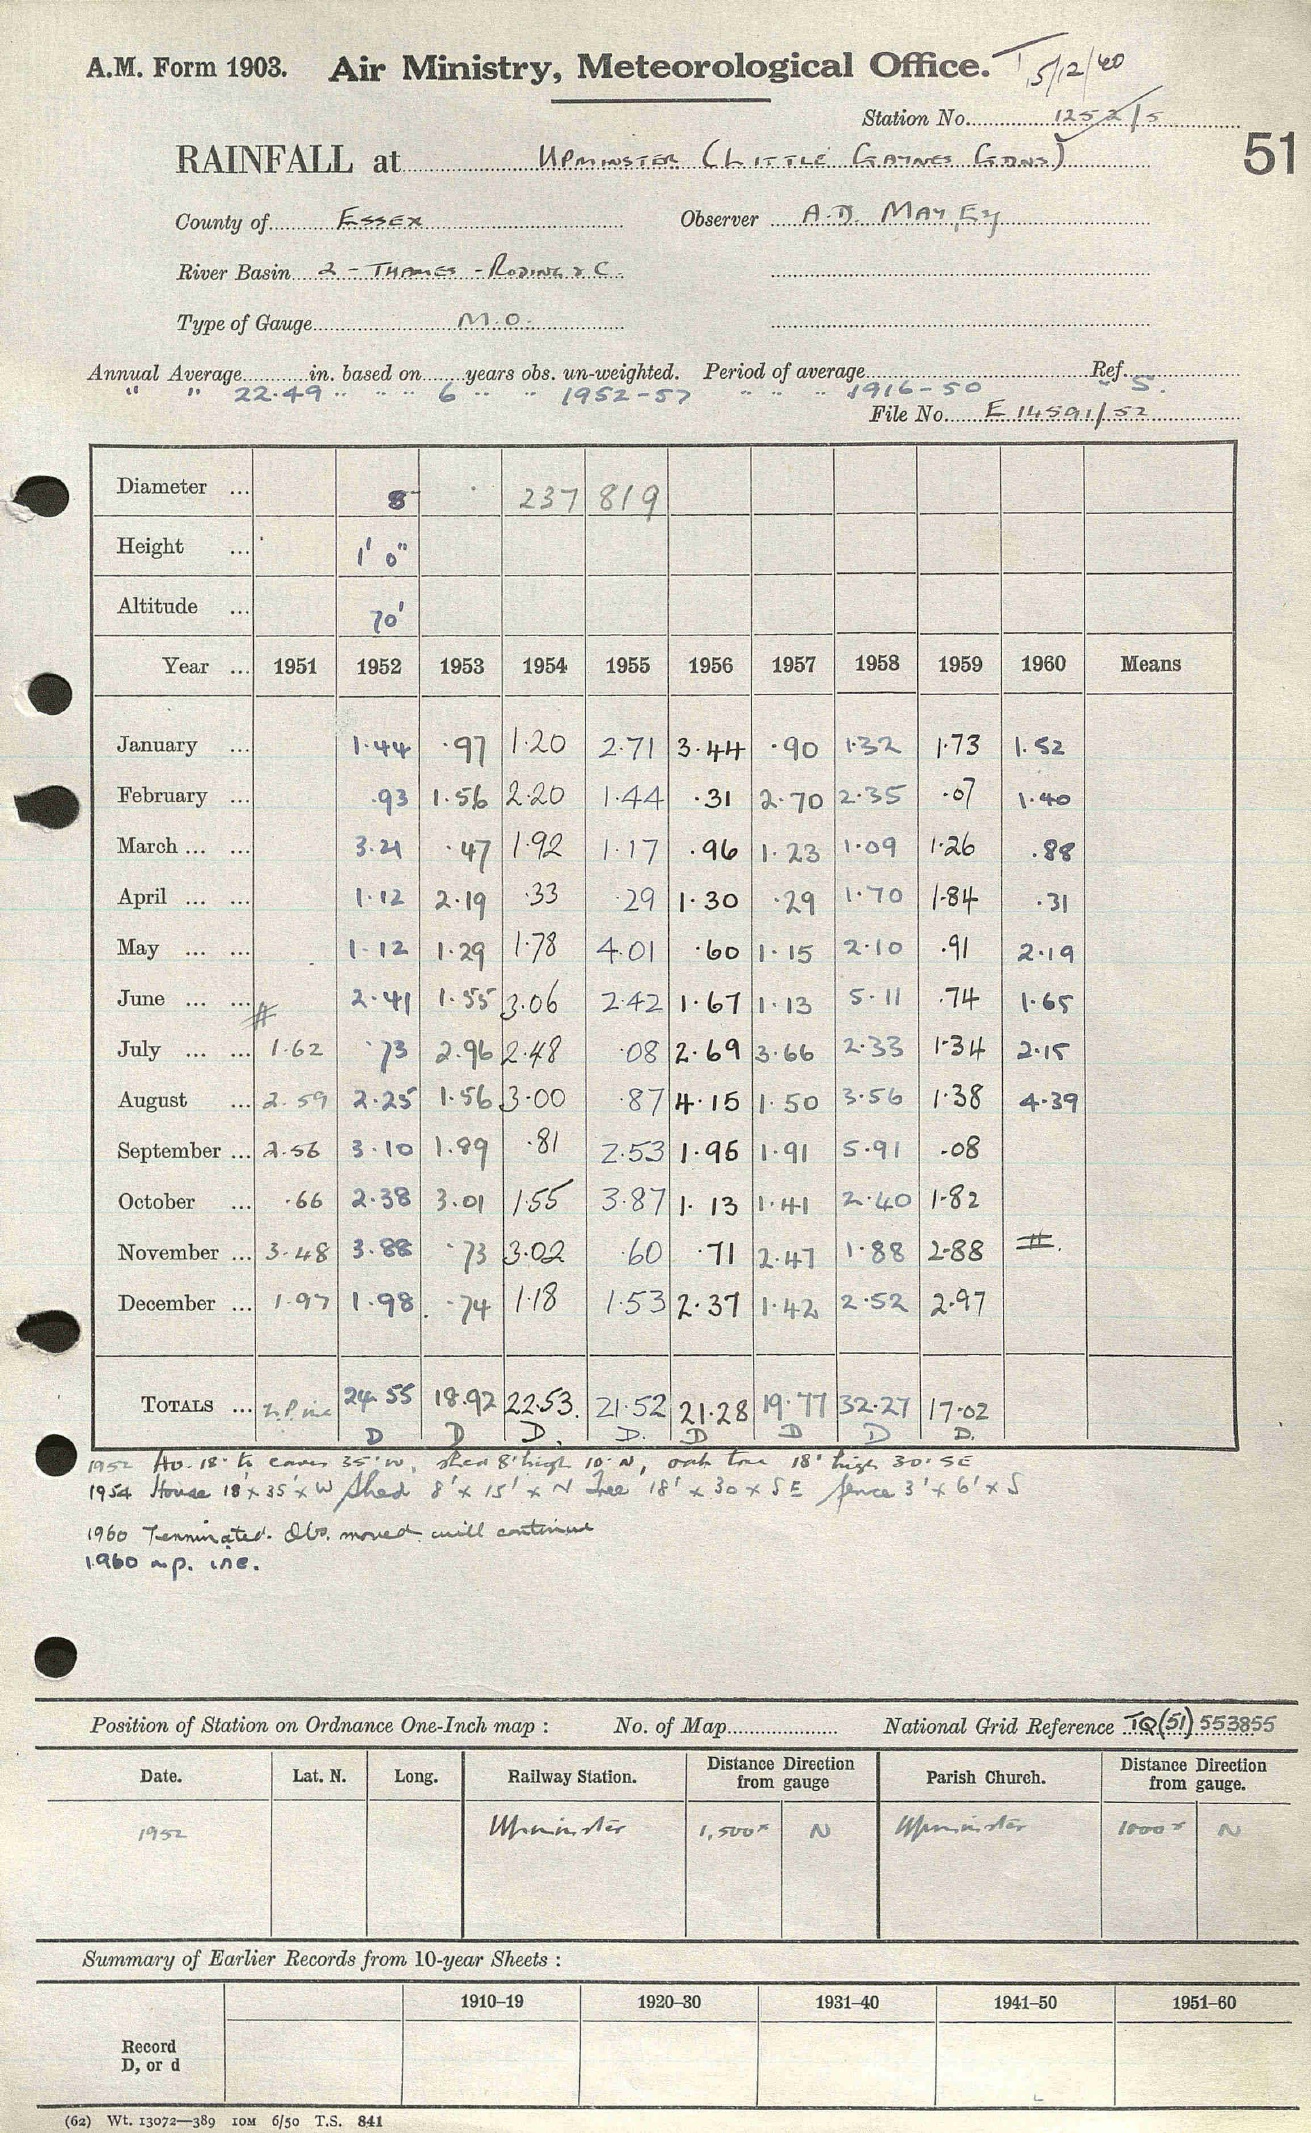 A.M. Form 1903. Air Ministry, Meteorological Office. T 5/12/40
Station No. 1252/5
51
RAINFALL at UPMINSTER (LITTLE GAYNES GDNS)
County of ESSEX Observer A.D. MAYEY
River Basin 2 - THAMES - RODING & C.
Type of Gauge M.O.
Annual Average in. based on years obs. un-weighted. Period of average Ref.
" " 22.49 " " " 6 " " 1952-57 " " " 1916-50 5.
File No. E 14591/52
Diameter ... 8 237 819
Height ... 1' 0"
Altitude ... 70'
Year ... 1951 1952 1953 1954 1955 1956 1957 1958 1959 1960 Means
January ... 1.44 .97 1.20 2.71 3.44 .90 1.32 1.73 1.52
February ... .93 1.56 2.20 1.44 .31 2.70 2.35 .07 1.40
March ... ... 3.21 .47 1.92 1.17 .96 1.23 1.09 1.26 .88
April ... ... 1.12 2.19 .33 .29 1.30 .29 1.70 1.84 .31
May ... ... 1.12 1.29 1.78 4.01 .60 1.15 2.10 .91 2.19
June ... ... 2.41 1.55 3.06 2.42 1.67 1.13 5.11 .74 1.65
July ... ... 1.62 .73 2.96 2.48 .08 2.69 3.66 2.33 1.34 2.15
August ... 2.59 2.25 1.56 3.00 .87 4.15 1.50 3.56 1.38 4.39
September ... 2.56 3.10 1.89 .81 2.53 1.95 1.91 5.91 .08
October ... .66 2.38 3.01 1.55 3.87 1.13 1.41 2.40 1.82
November ... 3.48 3.88 .73 3.02 .60 .71 2.47 1.88 2.88
December ... 1.97 1.98 .74 1.18 1.53 2.37 1.42 2.52 2.97
TOTALS ... n.p. inc 24.55 18.92 22.53 21.52 21.28 19.77 32.27 17.02
D D D. D. D D D D.
1952 Ho. 18' to eaves 35' W, shed 8' high 10' N, oak tree 18' high 30' SE
1954 House 18' x 35' x W Shed 8' x 15' x N Tree 18' x 30 x SE fence 3' x 6' x S
1960 Terminated. Obs. moved. will continue
1960 n.p. inc.
Position of Station on Ordnance One-Inch map : No. of Map National Grid Reference TQ(51) 553855
Date. Lat. N. Long. Railway Station. Distance Direction from gauge Parish Church. Distance Direction from gauge.
1952 Upminster 1,500x N Upminster 1000x N
Summary of Earlier Records from 10-year Sheets :
1910–19 1920–30 1931–40 1941–50 1951–60
Record
D, or d
(62) Wt. 13072—389 10M 6/50 T.S. 841